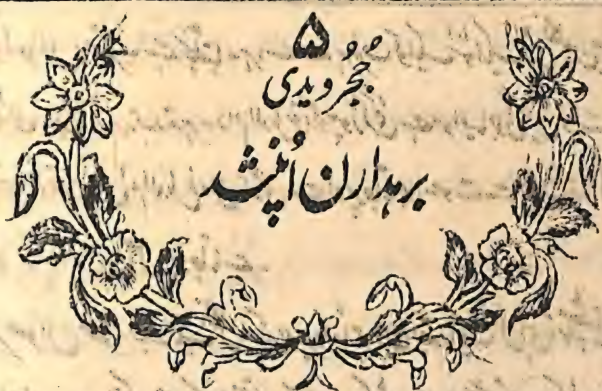 ۵
جُجُرویدی
برہدارن اُپنِشد